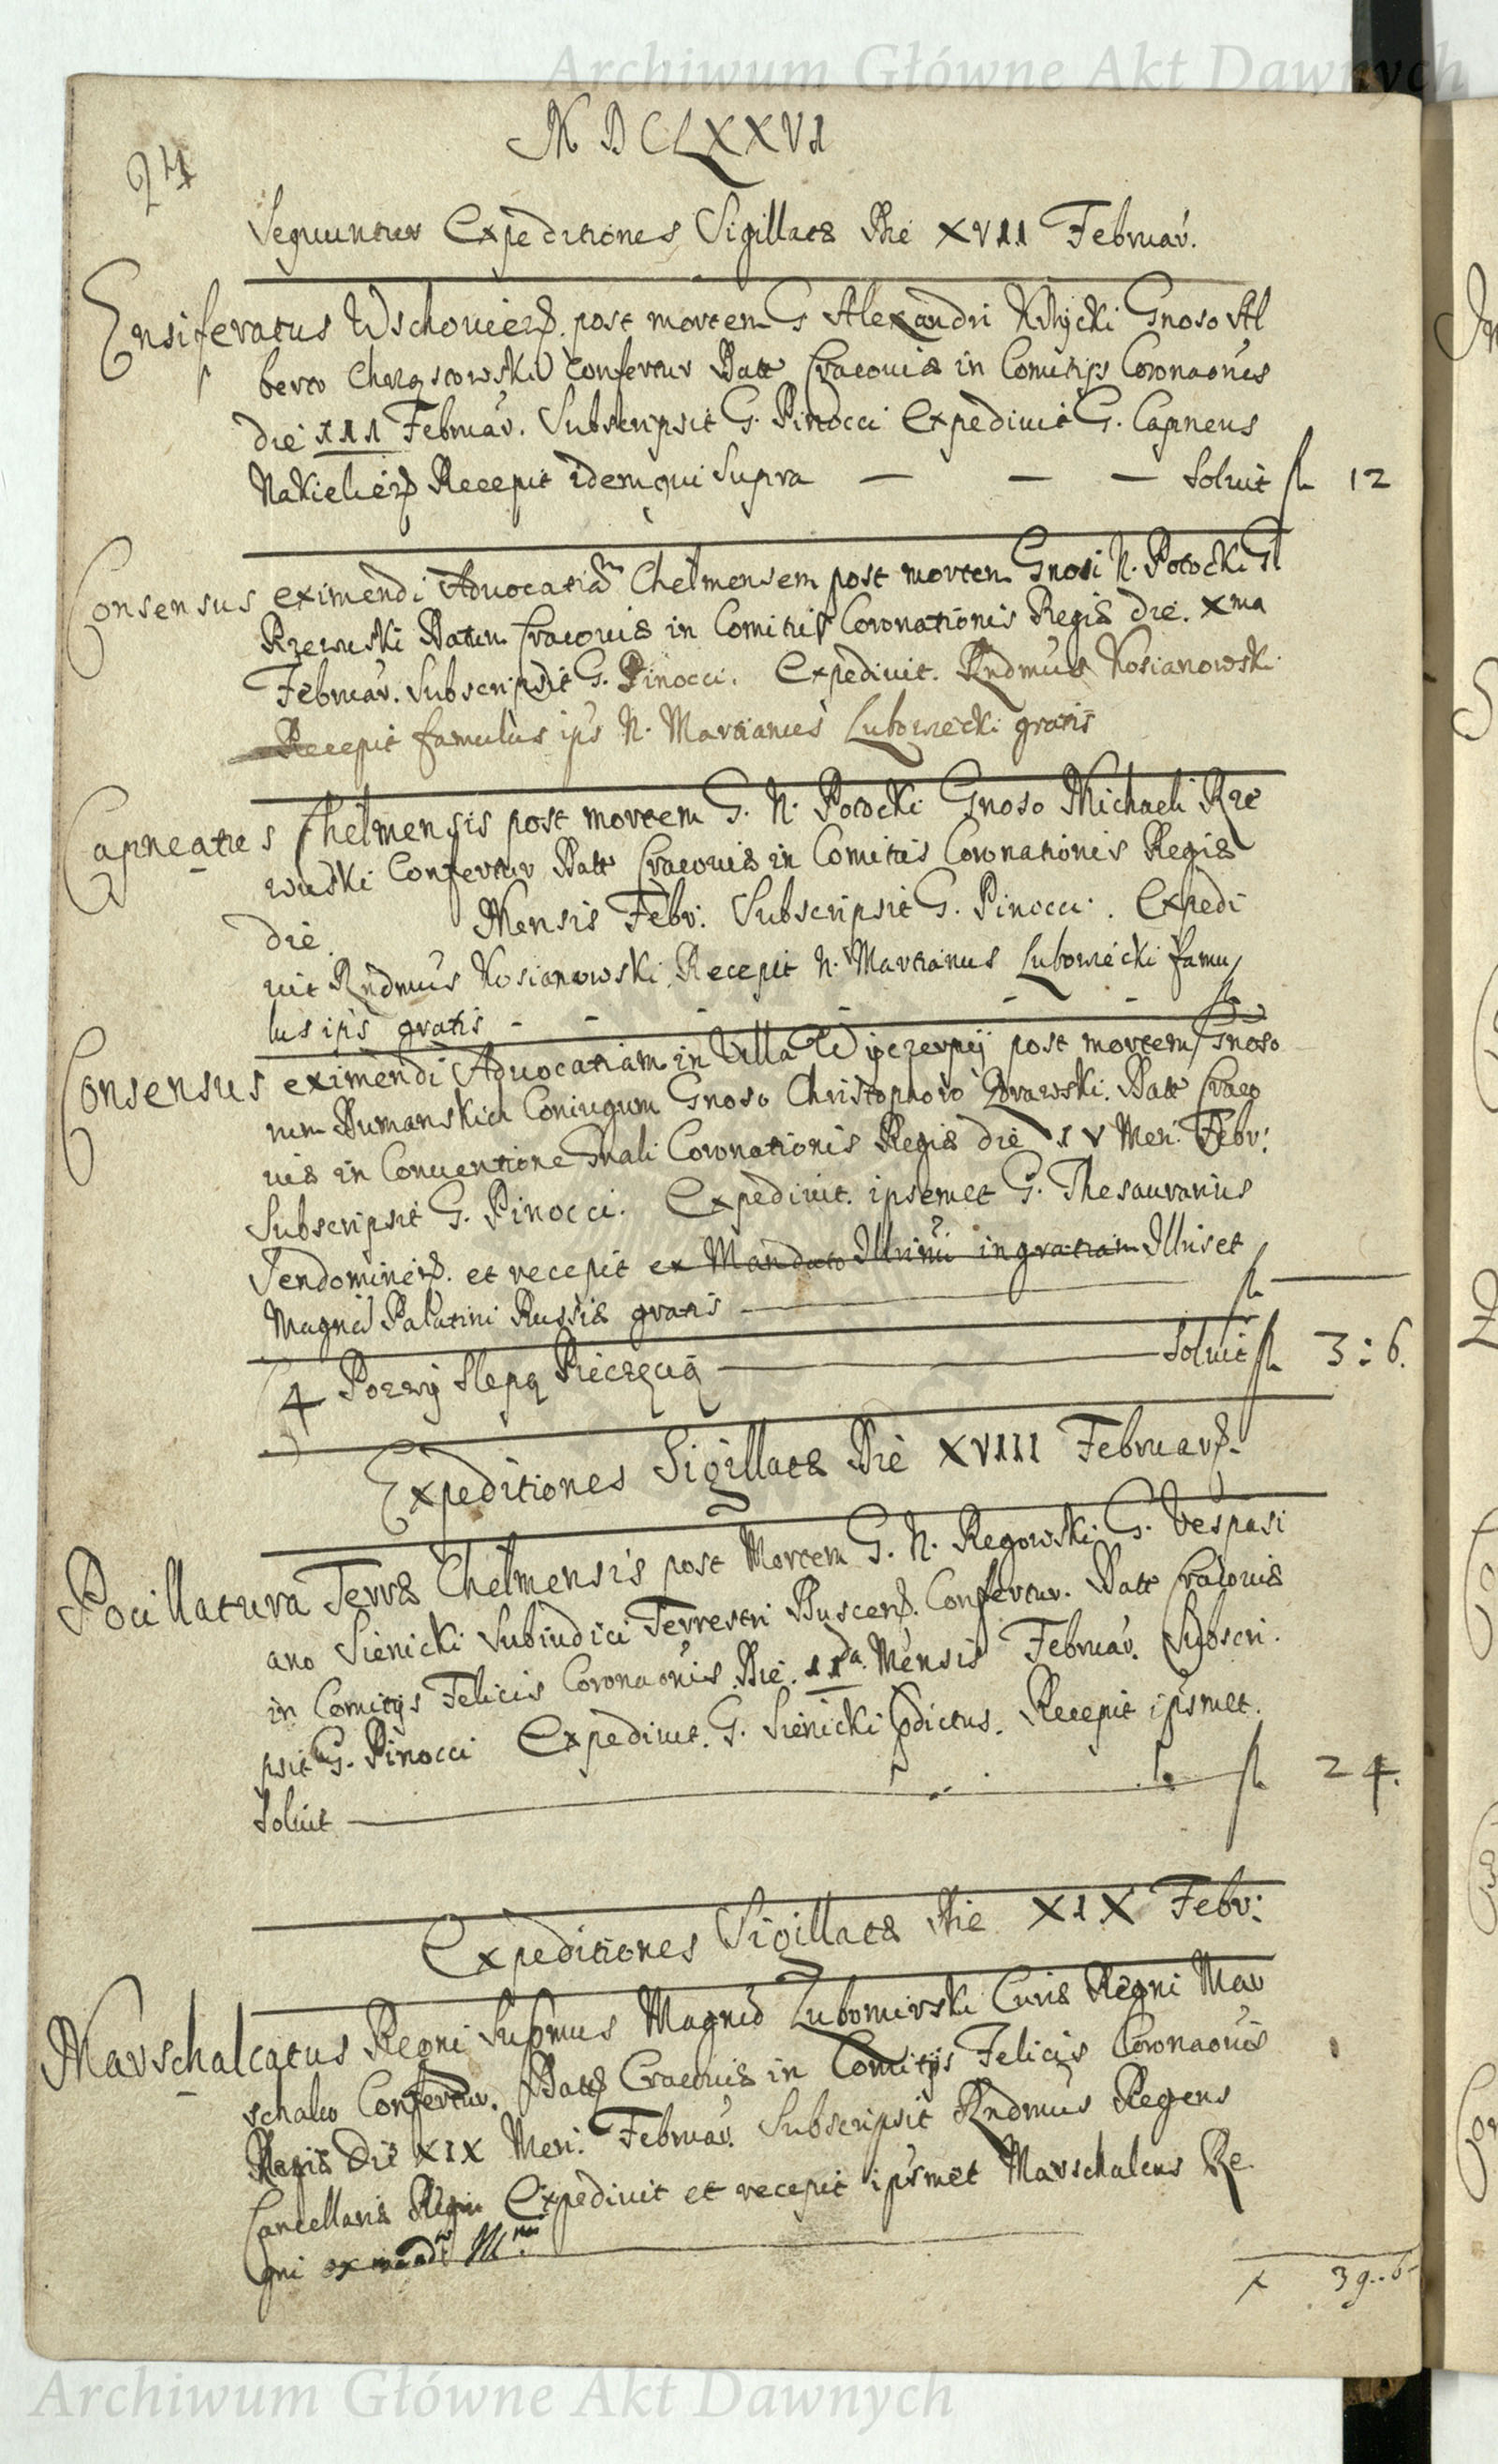 Archiwum Główne Akt Dawnych
MDCLXXVI
24
Sequuntur Expeditiones Sigillatæ Die XVII Februar.
Ensiferatus Wschouien. post mortem G Alexandri Gnoso Al
berto Confertur Datt Cracouiæ in Comitijs Coronaonis
die III Februar. Subscripsit G. Pinocci Expediuit G. Capneus
Nakielien Recepit idem qui Supra — — — Soluit fl 12
Consensus eximendi Aduocatiam Chelmensem post mortem Gnosi N. Potocki Gl
Rzewuski Datum Cracouiæ in Comitijs Coronationis Regiæ die. Xma
Februar. Subscripsit G. Pinocci. Expediuit. Rndmus Kosianowski
Recepit famulus ips N. Martianus Lubowiecki gratis
Capneatus Chelmensis post mortem G. N. Potocki Gnoso Michaeli Rze
wuski Confertur Datt Cracouiæ in Comitiis Coronationis Regiæ
die. Mensis Febr: Subscripsit G. Pinocci. Expedi
uit Rndmus Kosianowski Recepit N. Martianus Lubowiecki famu
lus ips gratis - - - - - - fl
Consensus eximendi Aduocatiam in Villa post mortem Gnoso
rum Dumanskich Coniugum Gnoso Christophoro Datt Craco
uiæ in Conuentione Gnali Coronationis Regiæ die IV Men. Febr:
Subscripsit G. Pinocci. Expediuit. ipsemet G. Thesaurarius
Sendomirien. et recepit ex Mandato Illrimi in gratiam Illris et
Magnci Palatini Russiæ gratis — fl —
4 Pozwy slepą Pieczęcią — Soluit fl 3:6.
Expeditiones Sigillatæ Die XVIII Februar.
Pocillatura Terræ Chelmensis post Mortem G. N. Regowski G. Vespasi
ano Sienicki Subiudici Terrestri Buscen. Confertur. Datt Cracouiæ
in Comitijs Felicis Coronaonis Die. IIda Mensis Februar. Subscri.
psit G. Pinocci Expediuit. G. Sienicki pdictus. Recepit ipsmet.
Soluit — fl 24.
Expeditiones Sigillatæ Die XIX Febr:
Marschalcatus Regni Supmus Magnco Lubomirski Curiæ Regni Mar
schalco Confertur. Datt Cracouiæ in Comitijs Felicis Coronaonis
Regiæ Die XIX Men: Februar. Subscripsit Rndmus Regens
Cancellariæ Regni Expediuit et recepit ipsmet Marschalcus Re
gni ex mandto
39..6
Archiwum Główne Akt Dawnych